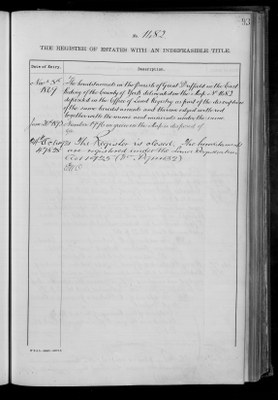 93
No. 1482.
THE REGISTER OF ESTATES WITH AN INDEFEASIBLE TITLE.
Date of Entry.
Description.
The hereditaments in the parish of Great Driffield in the East
Riding of the County of York delineated on the Map No 1482
deposited in the Office of Land Registry as part of the description
of the same hereditaments and thereon edged with red
together with the mines and minerals under the same
Number 19 from green on the Map is disposed of
The Register is closed. The hereditaments
are registered under the Land Registration
Act 1925